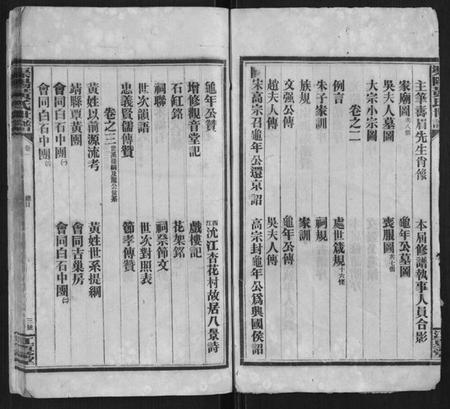 主筆壽眉先生肖像
本屆修譜執事人員合影
家廟圖
龜年公墓圖
吳夫人墓圖
喪服圖
大宗小宗圖
卷之二
例言
處世箴規十六條
朱子家訓
祠規
族規
家訓
文僖公傳
龜年公傳
趙夫人傳
吳夫人傳
宋高宗召龜年公還京詔
高宗封龜年公爲興國侯詔
龜年公贊
江西沈江杏花村故居八景詩
增修觀音堂記
戲樓記
石缸銘
花架銘
祠聯
祠祭節文
世次韻語
世次對照表
忠義賢儒傳贊
節孝傳贊
卷之三
黃姓以前源流考
黃姓世系提綱
靖縣買黃團
會同吉巢房
會同白石中團㈠
會同白石中團㈡
會同白石中團㈢
總目
三號
江夏堂